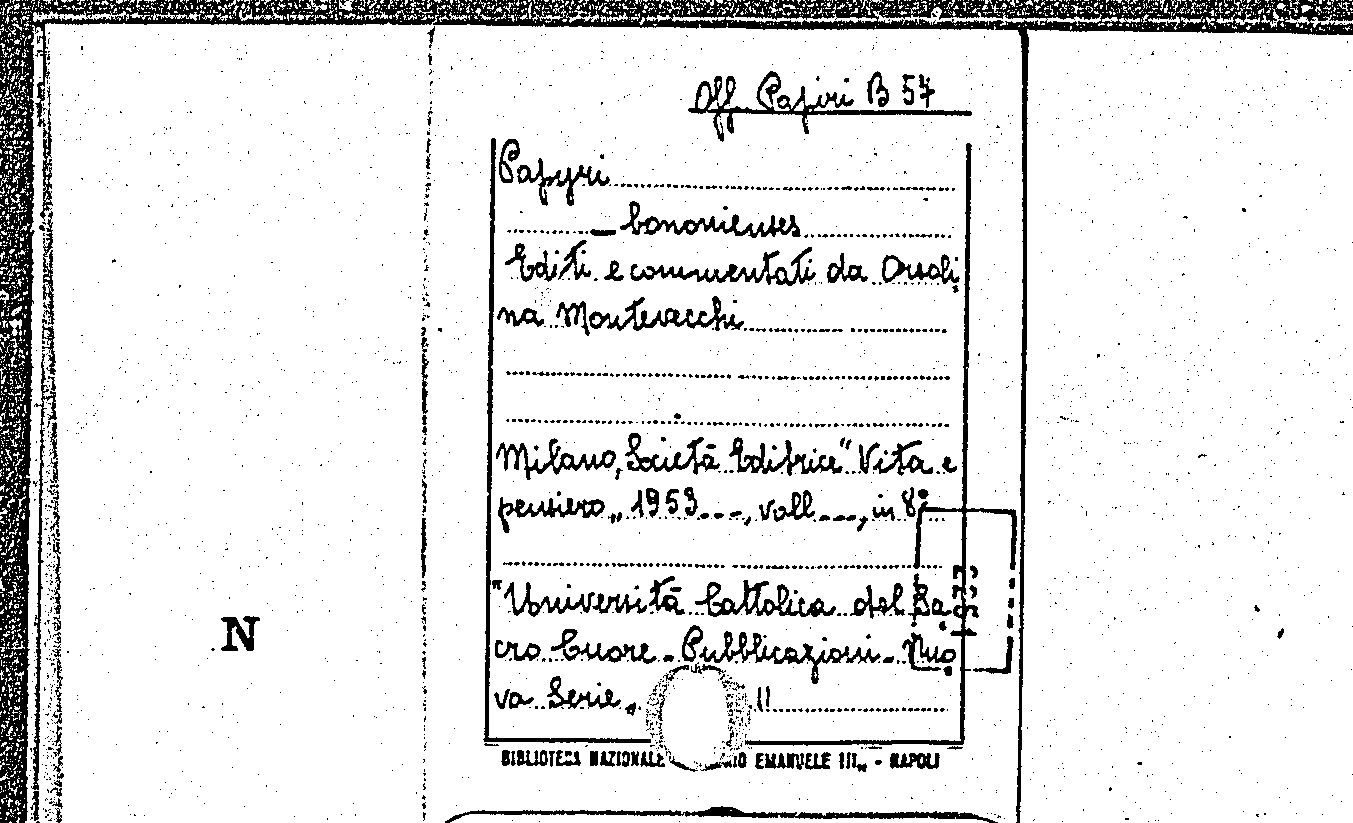 Off. Papiri B 57
Papyri
_ bononienses
Editi e commentati da Orsoli
na Montevecchi
Milano, Società Editrice "Vita e
pensiero„ 1953---, voll---, in 8°
"Università Cattolica del Sa
cro Cuore - Pubblicazioni - Nuo
va Serie„ II
N
BIBLIOTECA NAZIONALE EMANUELE III„ - NAPOLI